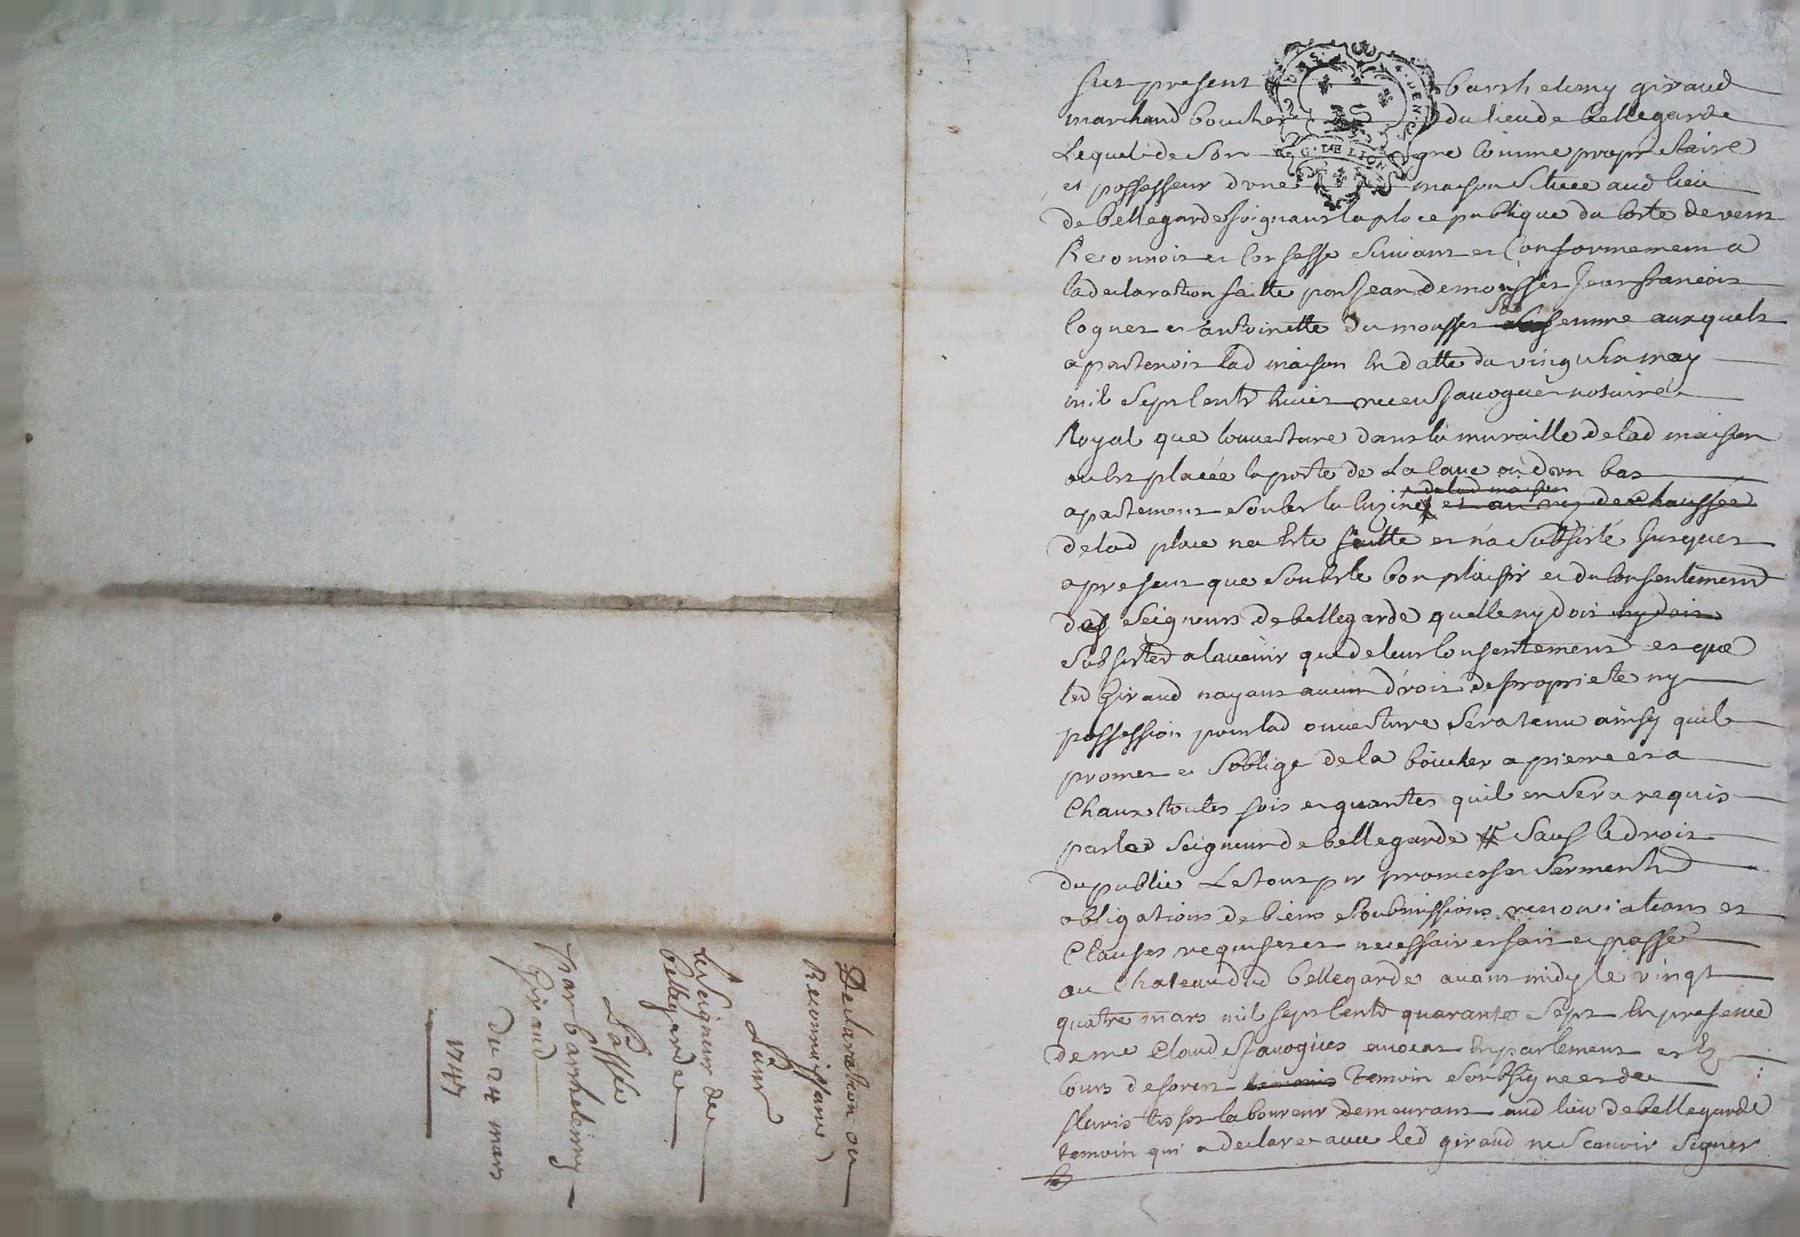 fut present barthelemy giraud
marchand boucher du lieu de bellegarde
Lequel de son gre comme proprietaire
et possesseur d'une maison situee aud lieu
de bellegarde joignant la place publique du coste de vent
Reconnoit et confesse suivant et conformement a
la declaration faitte par Jean demousset Jean francois
coquet et antoinette du mousset sa femme auxquels
apartenoit lad maison en datte du vingt six may
mil sept cents huict receu Javogue notaire
Royal que louverture dans la muraille de lad maison
ou est placée la porte de La cave ou d'un bas
apartement soubs la cuzine de lad maison et au rez de chaussée
de lad place na este faitte et n'a subsisté Jusques
a present que soubs le bon plaisir et du consentement
des seigneurs de bellegarde quelle ny doit ny doit
subsister a lavenir que de leur consentement et que
led Giraud nayant aucun droit de propriete ny
possession pour lad ouverture sera tenu ainsy quil
promet et soblige de la boucher a pierre et a
chaux toutes fois et quantes quil en sera requis
par led seigneur de bellegarde # sauf le droit
du public Le tout par promesses serments
obligations de biens soubmissions renonciations et
clauses requises et necessaires fait et passé
au chateau dud bellegarde avant midy le vingt
quatre mars mil sept cents quarante sept en presence
de me Claude Javogues avocat en parlement et ez
cours de forest temoin soubsigne et de
laboureur demeurant aud lieu de bellegarde
temoin qui a declare avec led giraud ne scavoir signer
Declaration ou
Reconnoissance
Pour
Le Seigneur de
bellegarde
Passée
Par barthelemy
Giraud
Du 24 mars
1747
GEN. DE LION